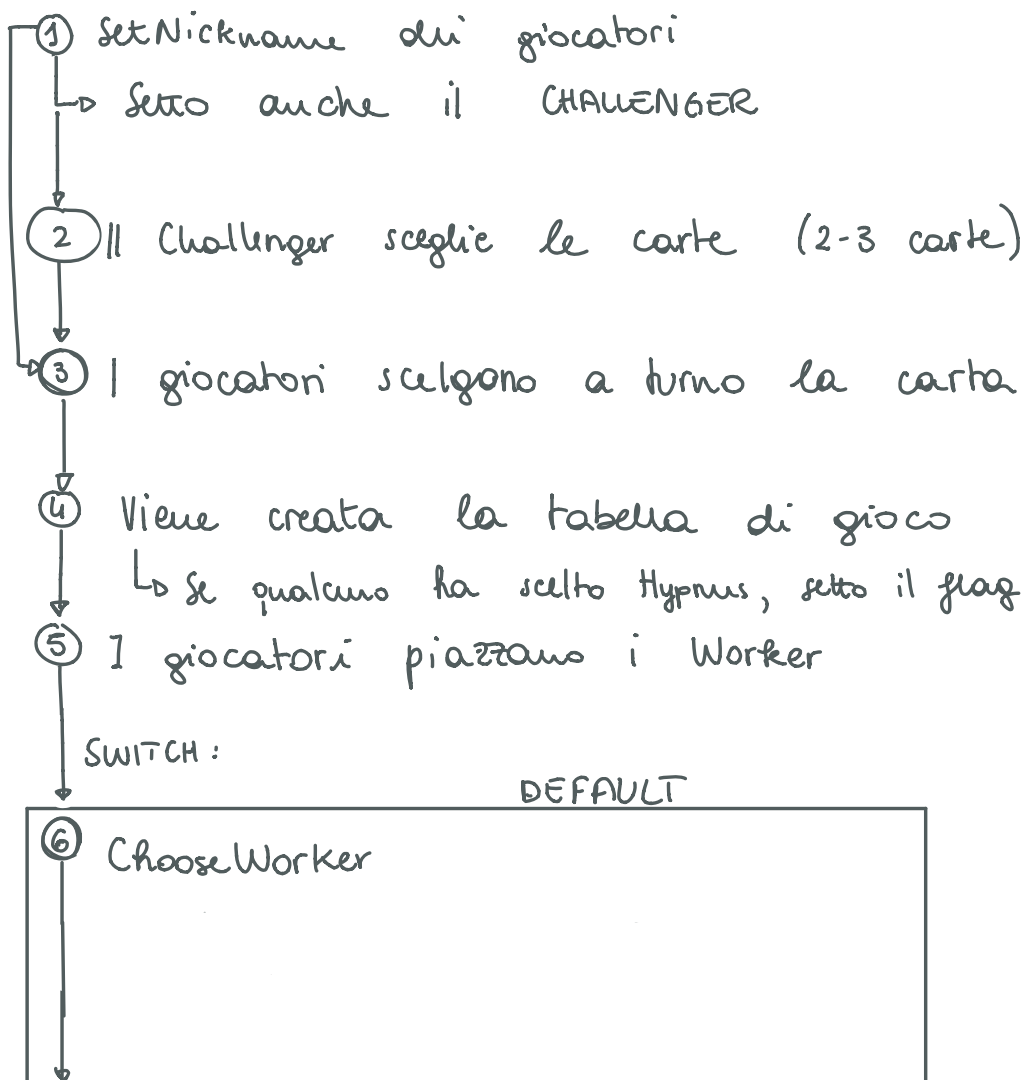 1 SetNickname dei giocatori
Setto anche il CHALLENGER
2 Il Challenger sceglie le carte (2-3 carte)
3 I giocatori scelgono a turno la carta
4 Viene creata la tabella di gioco
Se qualcuno ha scelto Hypnus, setto il flag
5 I giocatori piazzano i Worker
SWITCH:
DEFAULT
6 ChooseWorker